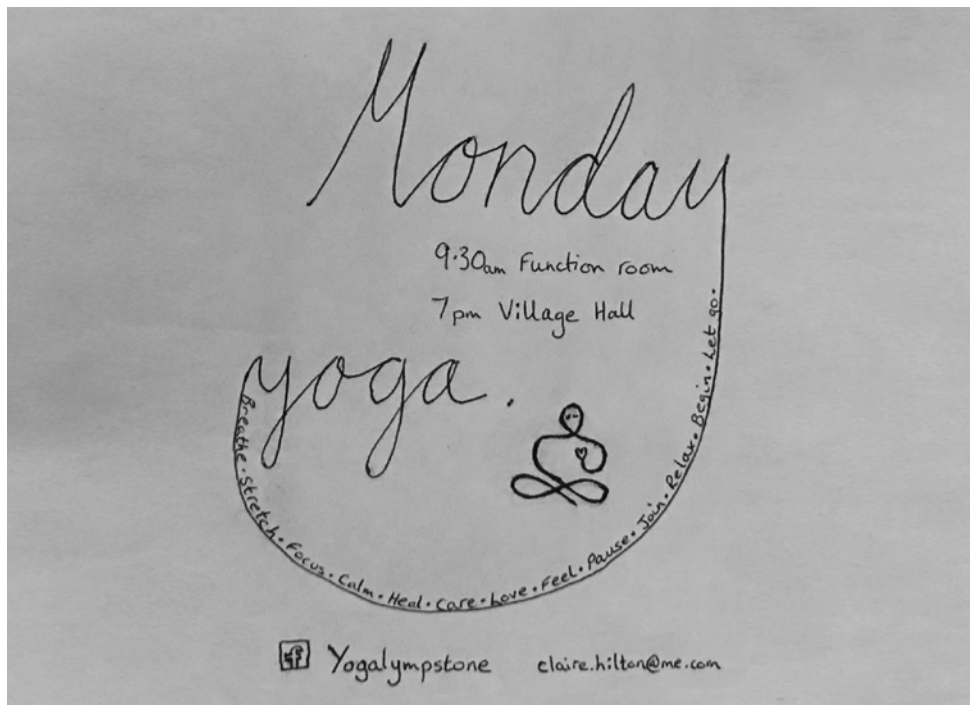 Monday
9.30am Function room
7pm Village Hall
yoga.
Breathe • Stretch • Focus • Calm • Heal • Care • Love • Feel • Pause • Join • Relax • Begin • Let go •
f Yogalympstone claire.hilton@me.com